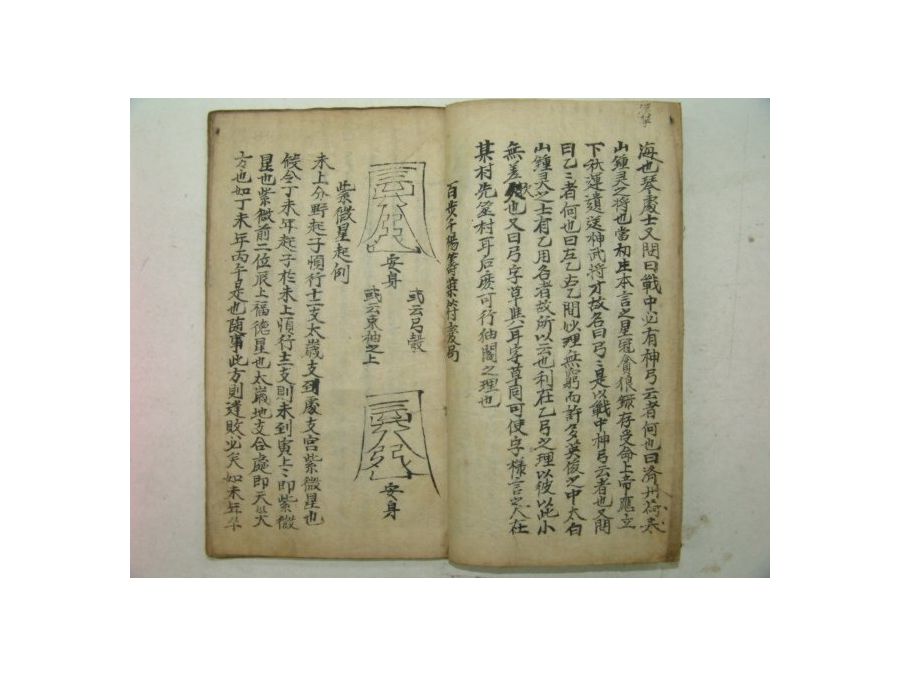 海也琴處士又問曰戰中必有神弓云者何也曰濟州
山鍾灵之將也當初生本言之星冠貪狼 存受命上帝應立
下 運 送神武將才故名曰弓弓是以戰中神弓云者也又問
曰乙乙者何也曰左乙右乙間以理無窮而許多英俊之中太白
山鍾灵之士有乙用名者故所以云也利在乙弓之理以彼以此小
無差 也又曰弓字草與耳字草同可使字樣言之人在
某村先 村耳后 可行 之理也
百步千楊籌
安身
或云弓彀
或云東袖之上
安身
紫微星起例
未上分野起子順行十二支太歲支到處支宮紫微星也
候令丁未年起子於未上順行十二支則未到寅上寅上即紫微
星也紫微前二位辰上福德星也太歲地支合處即天
方也如丁未年丙午是也随事此方則達敗必矣如未年